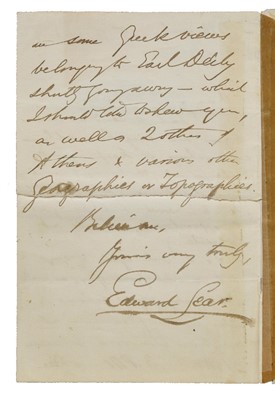 some Greek views
belonging to Earl Derby
shortly going away — which
I should like to shew you,
as well as 2 others of
Athens & various other
Geographies or Topographies.
Believe me,
Yours very truly,
Edward Lear.